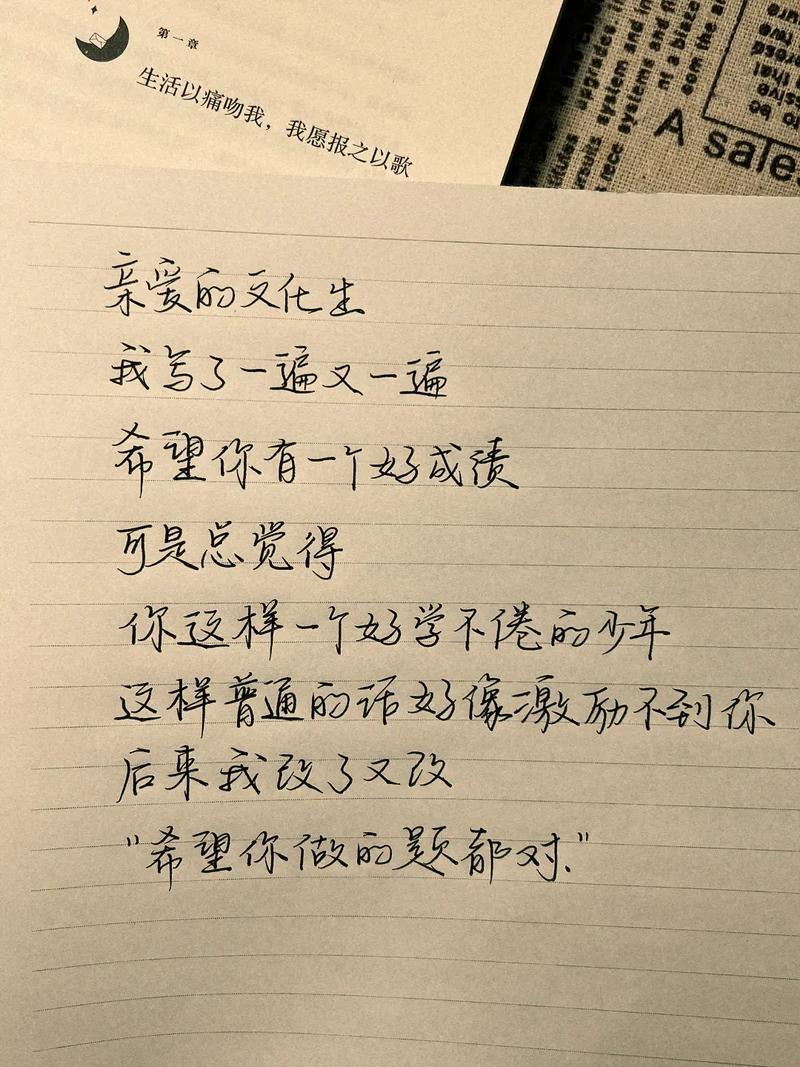 第一章
生活以痛吻我，我愿报之以歌
A sales
亲爱的文化生
我写了一遍又一遍
希望你有一个好成绩
可是总觉得
你这样一个好学不倦的少年
这样普通的话好像激励不到你
后来我改了又改
“希望你做的题都对.”